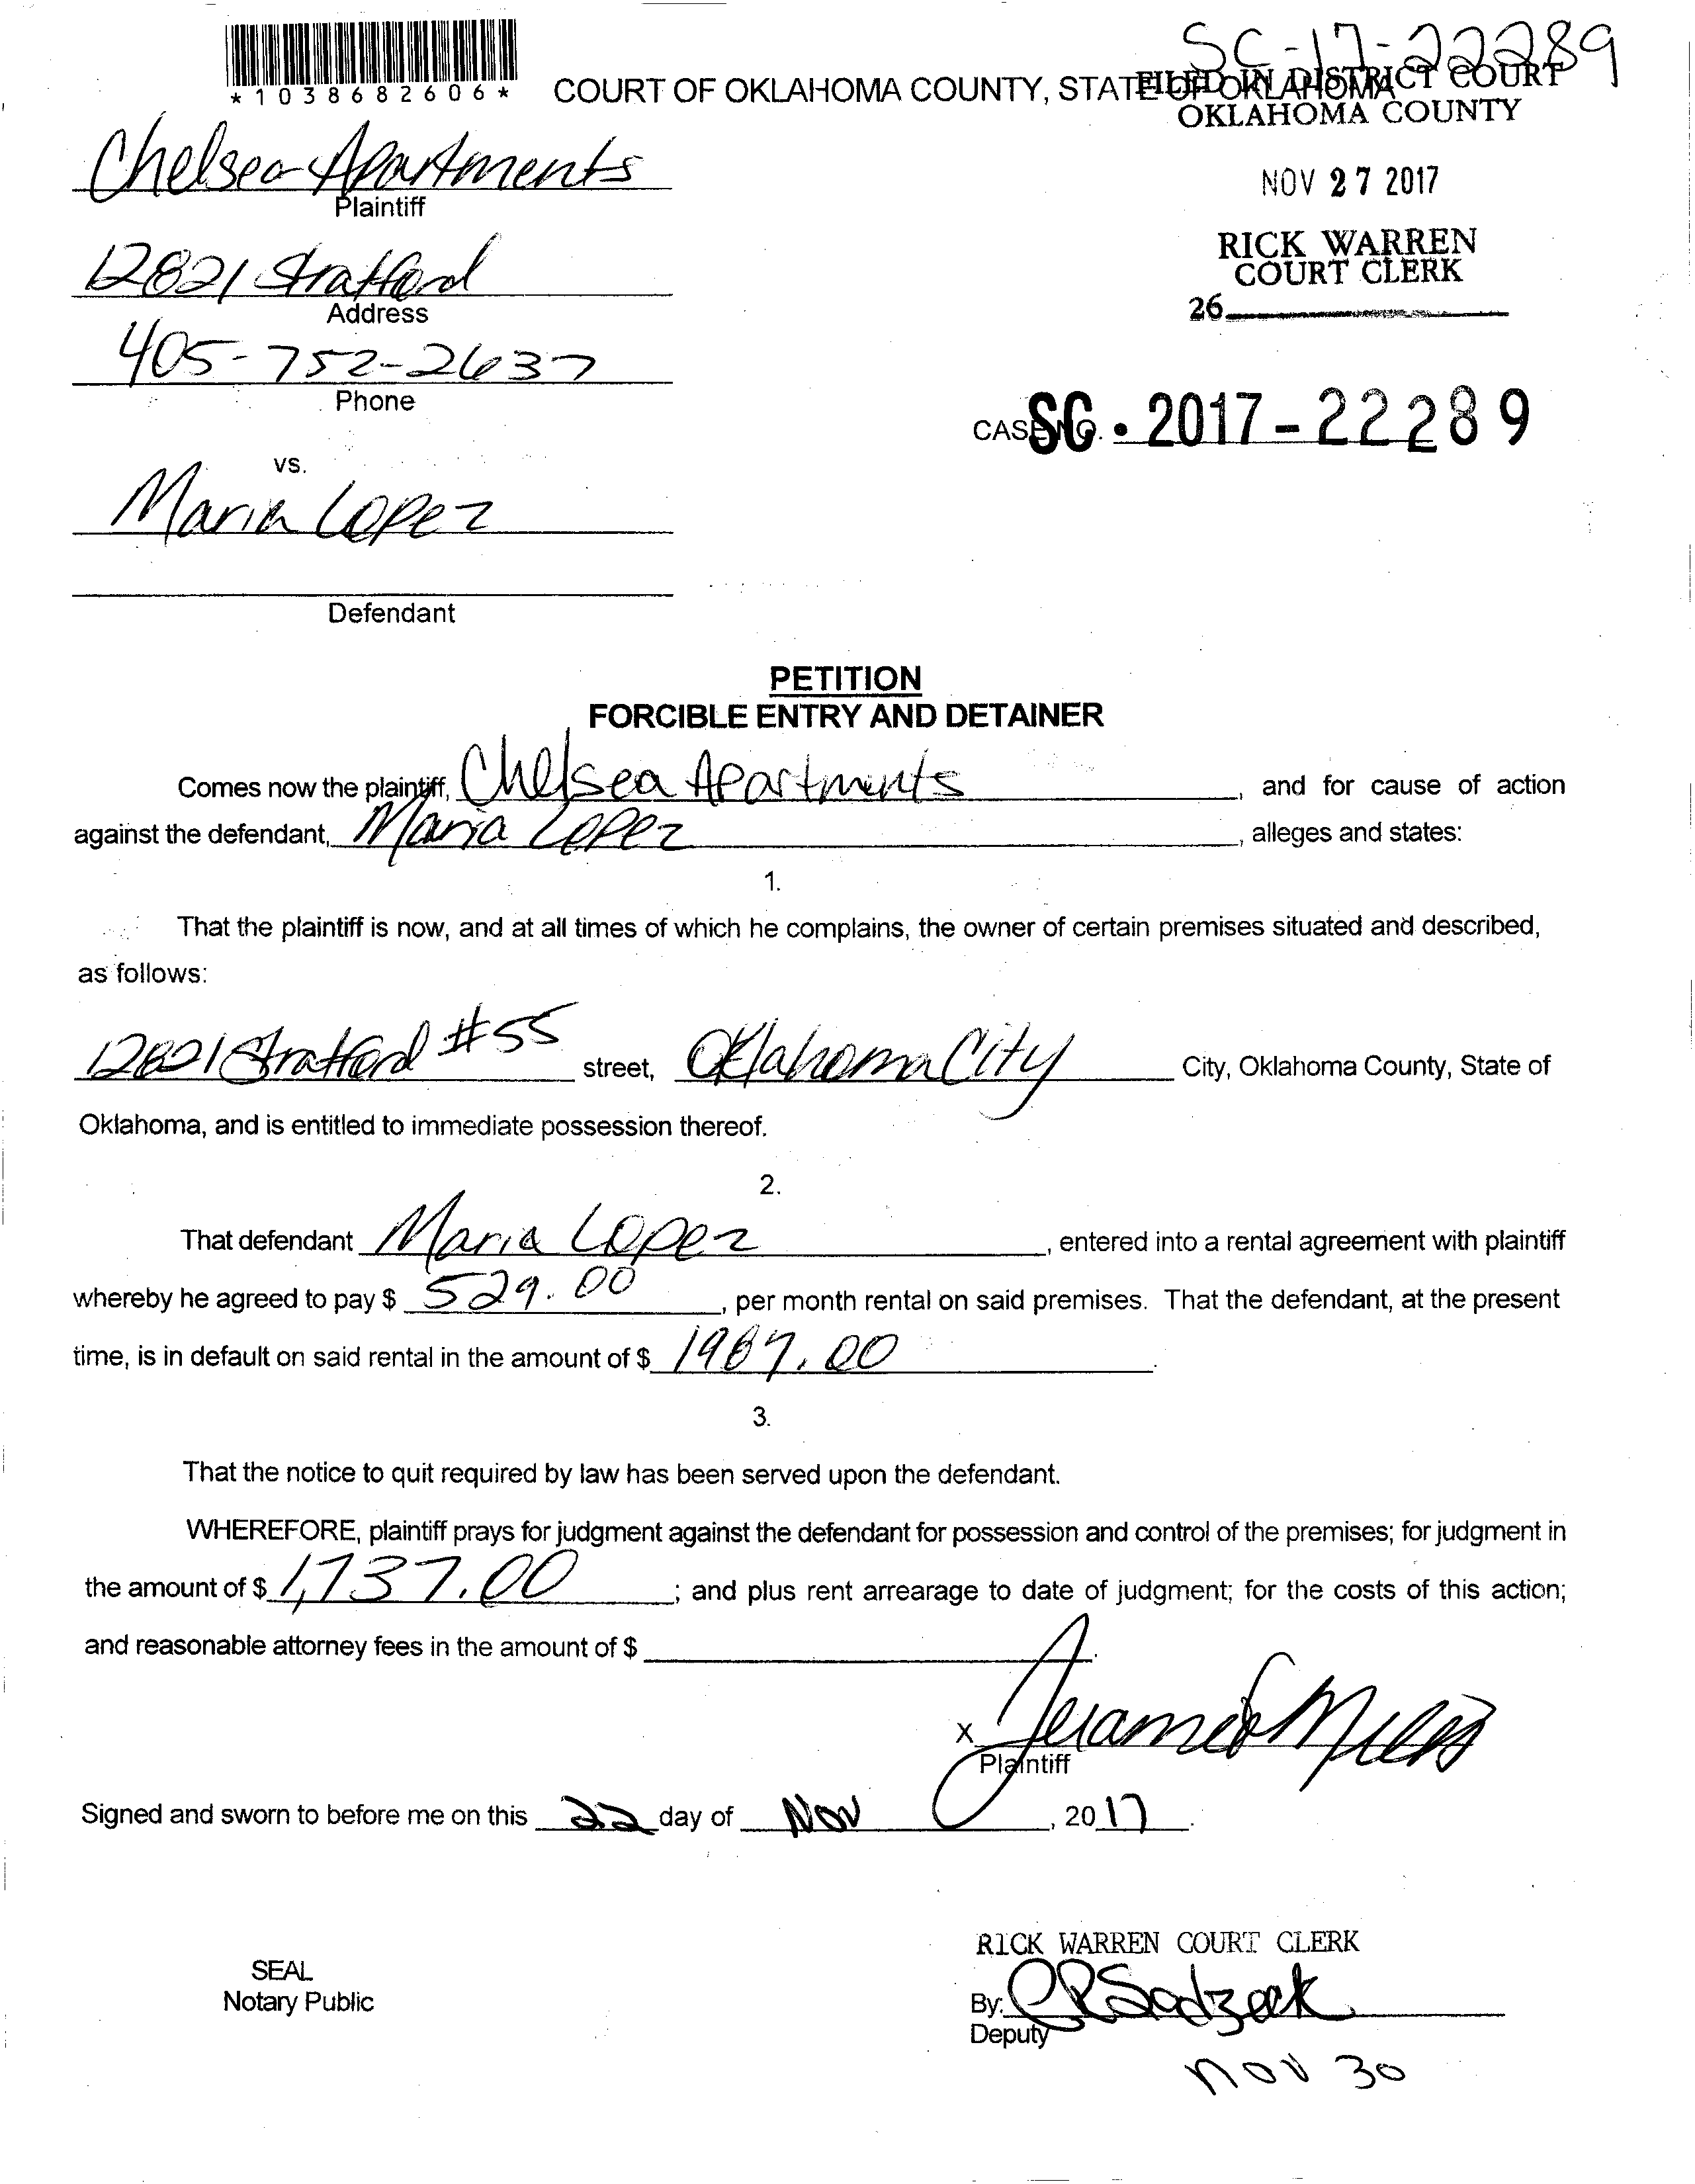 SC-17-22289
*1038682606*
COURT OF OKLAHOMA COUNTY, STATE OF OKLAHOMA
FILED IN DISTRICT COURT
OKLAHOMA COUNTY
Chelsea Apartments
Plaintiff
NOV 27 2017
12821 Stratford
Address
RICK WARREN
COURT CLERK
26
405-752-2637
Phone
CASE NO. SC - 2017 - 22289
vs.
Maria Lopez
Defendant
PETITION
FORCIBLE ENTRY AND DETAINER
Comes now the plaintiff, Chelsea Apartments, and for cause of action
against the defendant, Maria Lopez, alleges and states:
1.
That the plaintiff is now, and at all times of which he complains, the owner of certain premises situated and described,
as follows:
12821 Stratford #55 street, Oklahoma City City, Oklahoma County, State of
Oklahoma, and is entitled to immediate possession thereof.
2.
That defendant Maria Lopez, entered into a rental agreement with plaintiff
whereby he agreed to pay $ 529.00, per month rental on said premises. That the defendant, at the present
time, is in default on said rental in the amount of $ .
3.
That the notice to quit required by law has been served upon the defendant.
WHEREFORE, plaintiff prays for judgment against the defendant for possession and control of the premises; for judgment in
the amount of $ 1,737.00; and plus rent arrearage to date of judgment; for the costs of this action;
and reasonable attorney fees in the amount of $ .
X
Plaintiff
Signed and sworn to before me on this 22 day of Nov, 2017.
RICK WARREN COURT CLERK
SEAL
Notary Public
By:
Deputy
Nov 30